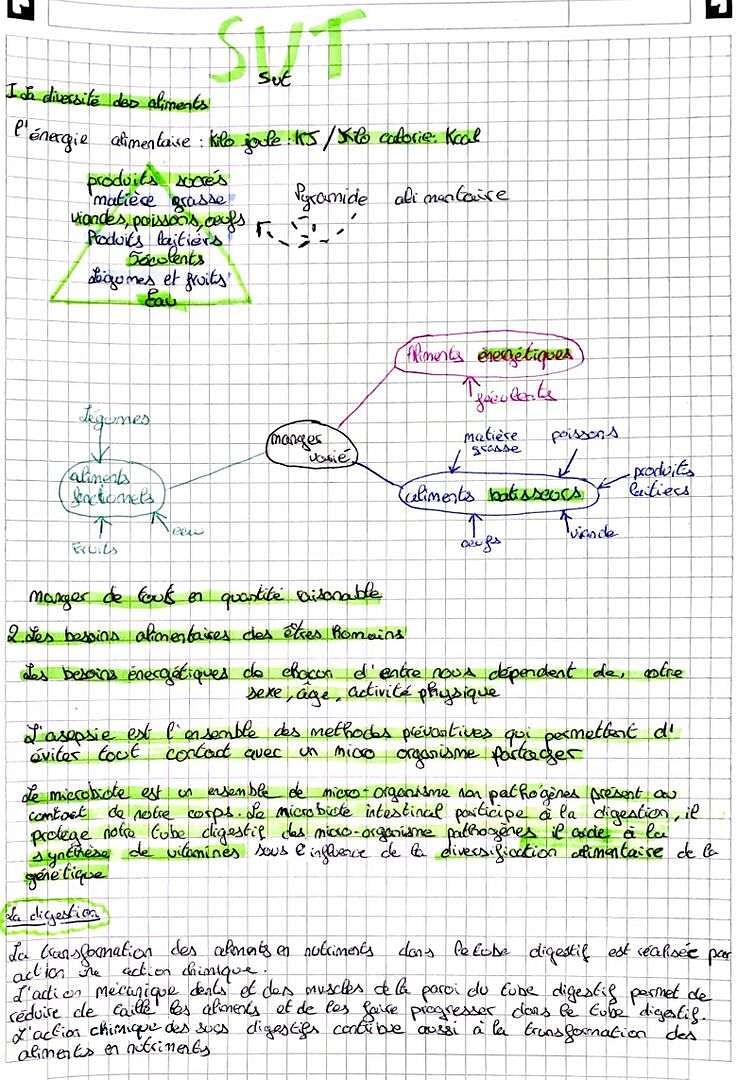 SVT
Svt
I La diversité des aliments
l'énergie alimentaire : Kilo joule : KJ / Kilo calorie : Kcal
produits sucrés
matière grasse
viandes, poissons, œufs
Produits laitiers
Féculents
Légumes et fruits
Eau
Pyramide alimentaire
Aliments énergétiques
féculents
Légumes
manger varié
matière grasse
poissons
produits laitiers
aliments fonctionnels
aliments batisseurs
Fruits
eau
œufs
viande
manger de tout en quantité raisonable
2. Les besoins alimentaires des êtres Humains
Les besoins énergétiques de chacun d'entre nous dépendent de, notre
sexe, âge, activité physique
L'asepsie est l'ensemble des methodes préventives qui permettent d'
éviter tout contact avec un micro organisme
Le microbiote est un ensemble de micro-organisme non pathogènes présent au
contact de notre corps. Le microbiote intestinal participe à la digestion, il
protege notre tube digestif des micro-organisme pathogènes il aide à la
synthèse de vitamines sous l'influence de la diversification alimentaire de la
génetique
La digestion
La transformation des aliments en nutriments dans le tube digestif est réalisée par
action une action chimique.
L'action mécanique dents et des muscles de la paroi du tube digestif permet de
réduire de taille les aliments et de les faire progresser dans le tube digestif.
L'action chimique des sucs digestifs contribue aussi à la transformation des
aliments en nutriments